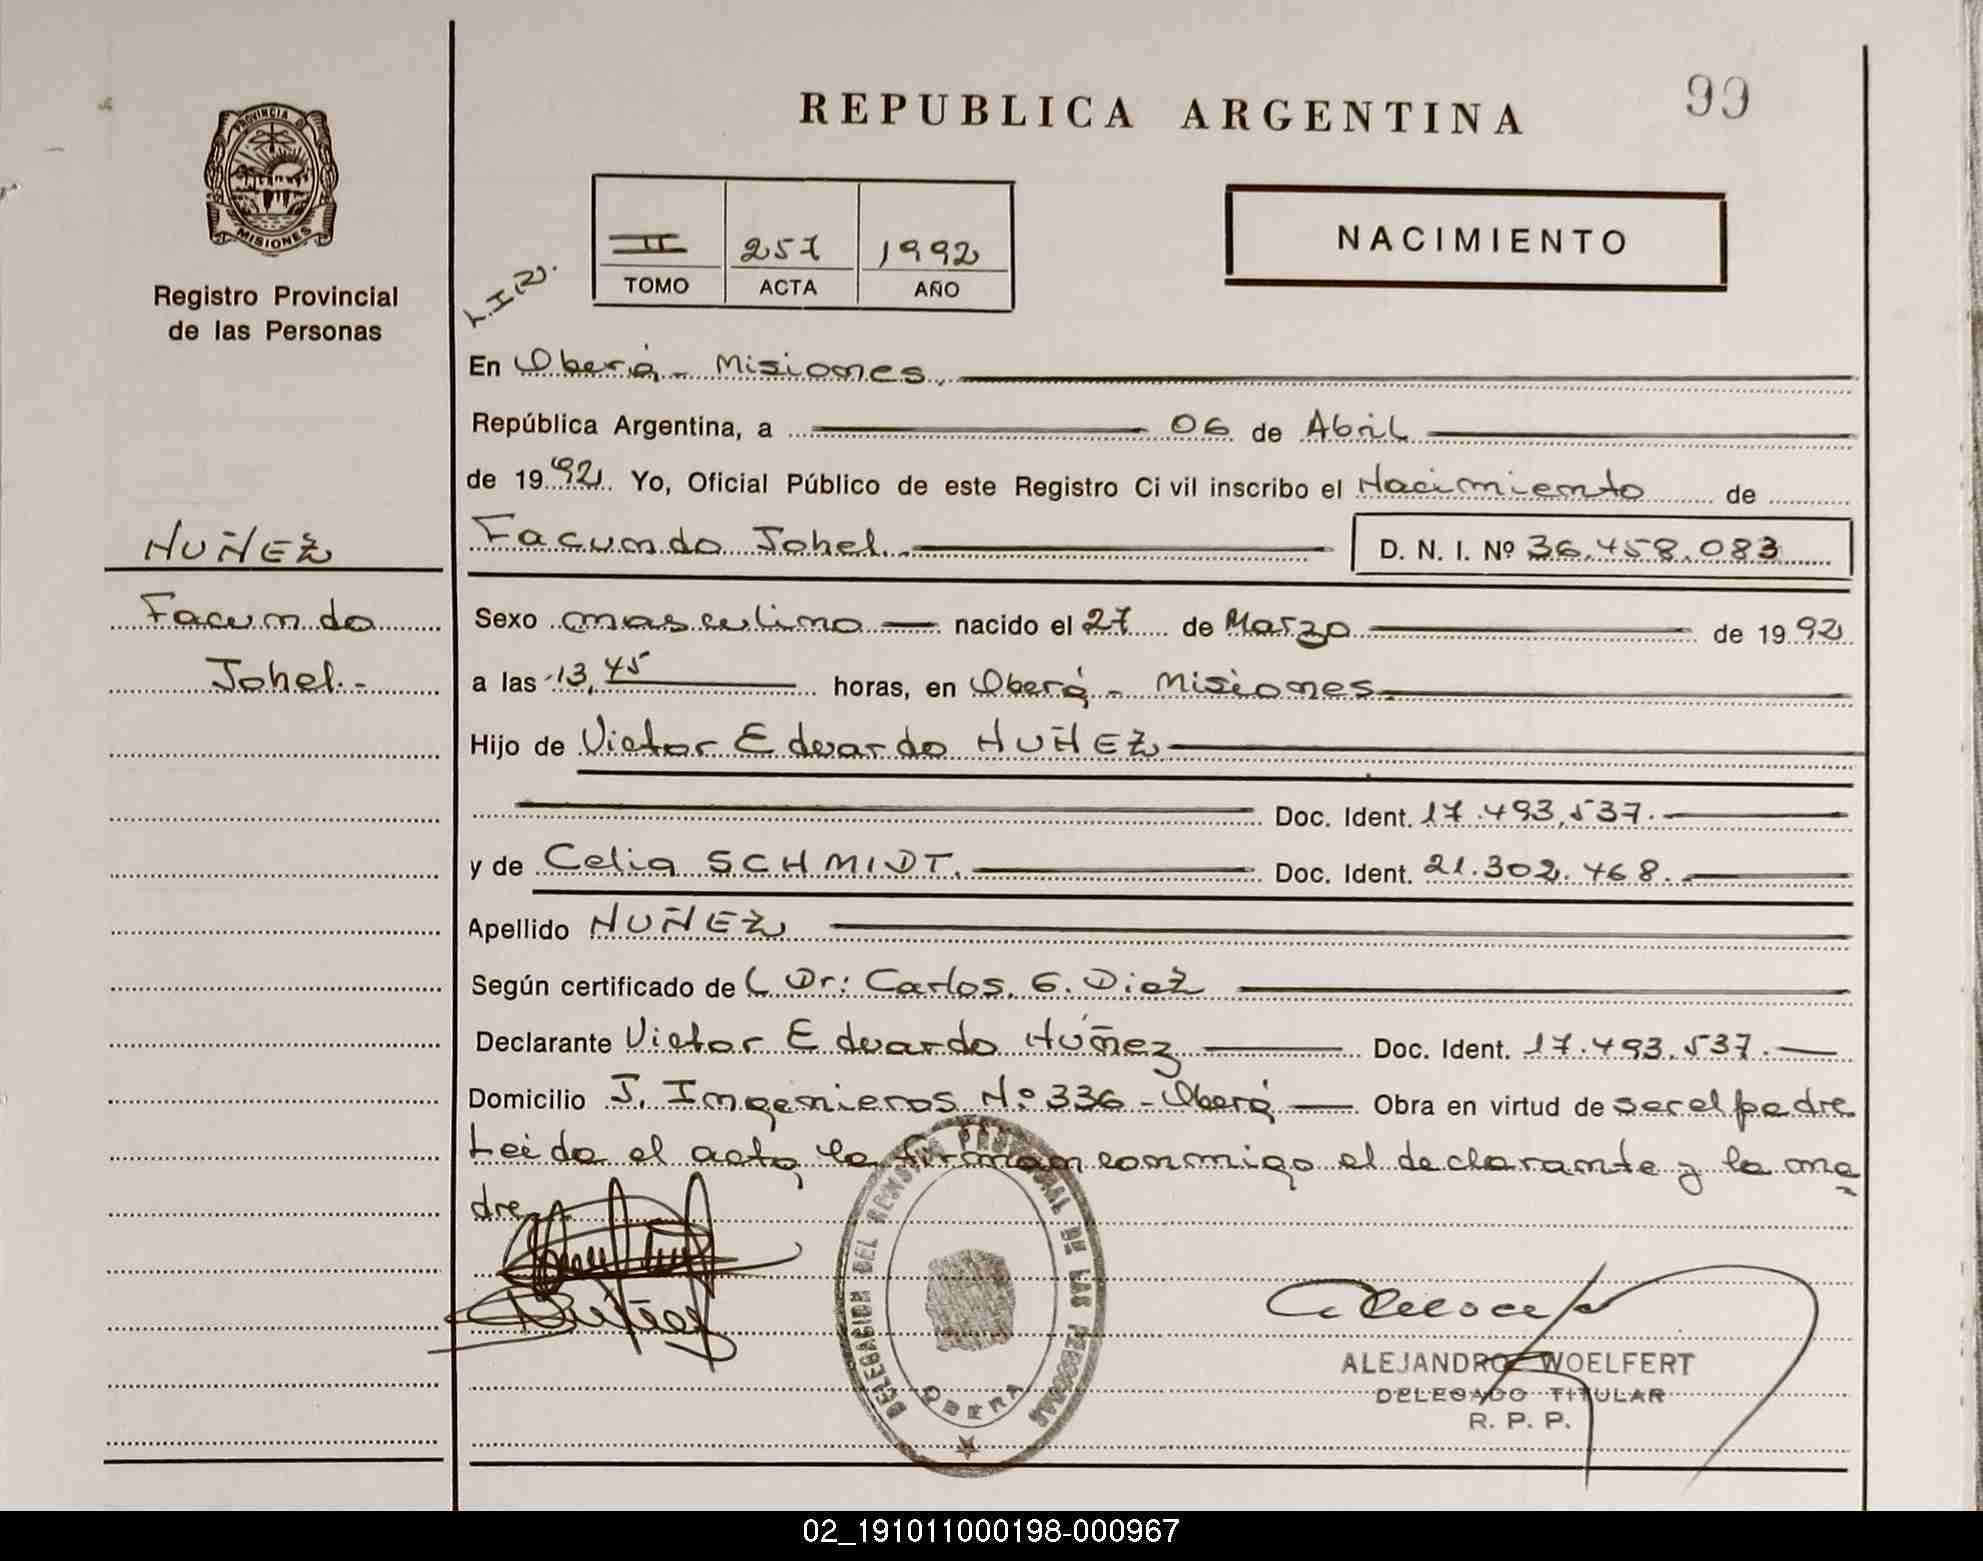 REPUBLICA ARGENTINA
99
PROVINCIA D
MISIONES
Registro Provincial
de las Personas
II 257 1992
TOMO ACTA AÑO
NACIMIENTO
En Oberá - Misiones.
República Argentina, a 06 de Abril
de 1992. Yo, Oficial Público de este Registro Civil inscribo el Nacimiento de
NUÑEZ
Facundo Johel.-
Facundo Johel.- D. N. I. Nº 36.458.083
Sexo masculino nacido el 27 de Marzo de 1992
a las 13,45 horas, en Oberá - Misiones.
Hijo de Victor Eduardo NUÑEZ
Doc. Ident. 17.493.537.
y de Celia SCHMIDT. Doc. Ident. 21.302.468.
Apellido NUÑEZ
Según certificado de L Dr: Carlos. G. Diez
Declarante Victor Eduardo Núñez Doc. Ident. 17.493.537.
Domicilio J. Ingenieros Nº 336 - Oberá Obra en virtud de ser el padre
Leida el acta la firman conmigo el declarante y la ma
dre
DELEGACION DEL REGISTRO PROVINCIAL DE LAS PERSONAS
OBERA
ALEJANDRO WOELFERT
DELEGADO TITULAR
R. P. P.
02_191011000198-000967